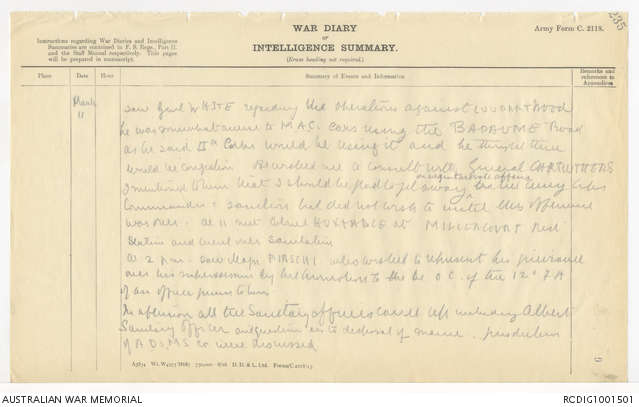 235
WAR DIARY
OF
INTELLIGENCE SUMMARY.
(Erase heading not required.)
Army Form C. 2118.
Instructions regarding War Diaries and Intelligence
Summaries are contained in F. S. Regs., Part II.
and the Staff Manual respectively. Title pages
will be prepared in manuscript.
Place
Date
Hour
Summary of Events and Information
Remarks and
references to
Appendices
March
11
Saw Genl WHITE regarding the operations against LOUPART WOOD
he was somewhat averse to M.A.C. cars using the BAPAUME Road
as he said IInd Corps would be using it and he thought there
would be congestion. He wished me to consult with General CARRUTHERS
I mentioned to him that I should be glad to get away
on the Army Corps
Commander's sanction but did not wish to until this offensive
was over. At 11 met Colonel HUXTABLE at MILLENCOURT Rest
Station and went over sanitation
At 2 pm. saw Major HIRSCHI who wished to represent his grievance
over his supersession by the 12th F.A
of an officer junior to him
In afternoon all the Sanitary officers including Albert
Sanitary Officer and question as to disposal of manure
of A.D.sM.S. &c were discussed
9
A5834 Wt. W4973/M687 750,000 8/16 D. D. & L. Ltd. Forms/C.2118/13
AUSTRALIAN WAR MEMORIAL
RCDIG1001501